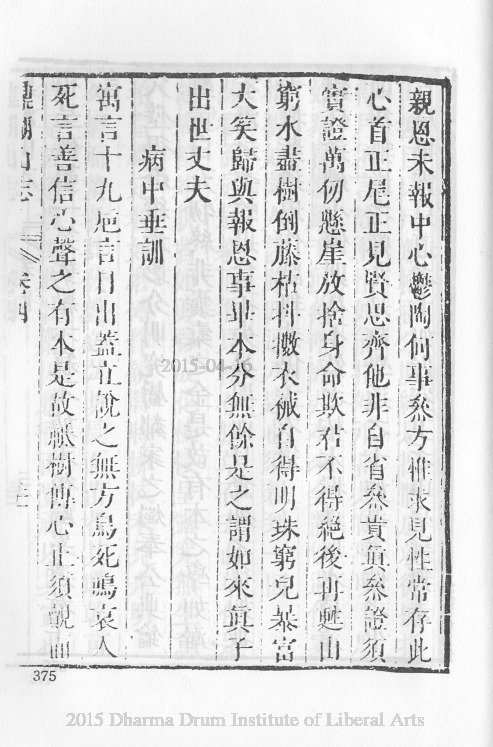 親恩未報中心鬱陶何事叅方惟求見性常存此
心首正尾正見賢思齊他非自省叅貴眞叅證須
實證萬仞懸崖放捨身命欺君不得絕後再甦山
窮水盡樹倒藤枯抖擻衣裓自得明珠窮兒暴富
大笑歸與報恩事畢本分無餘是之謂如來眞子
出世丈夫
病中垂訓
寓言十九巵言日出蓋立說之無方鳥死鳴哀人
死言善信心聲之有本是故祇樹傳心止須覿面
山志 卷四
2015-04-16
375
2015 Dharma Drum Institute of Liberal Arts